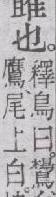 雎也。
釋鳥曰
鷹尾上白